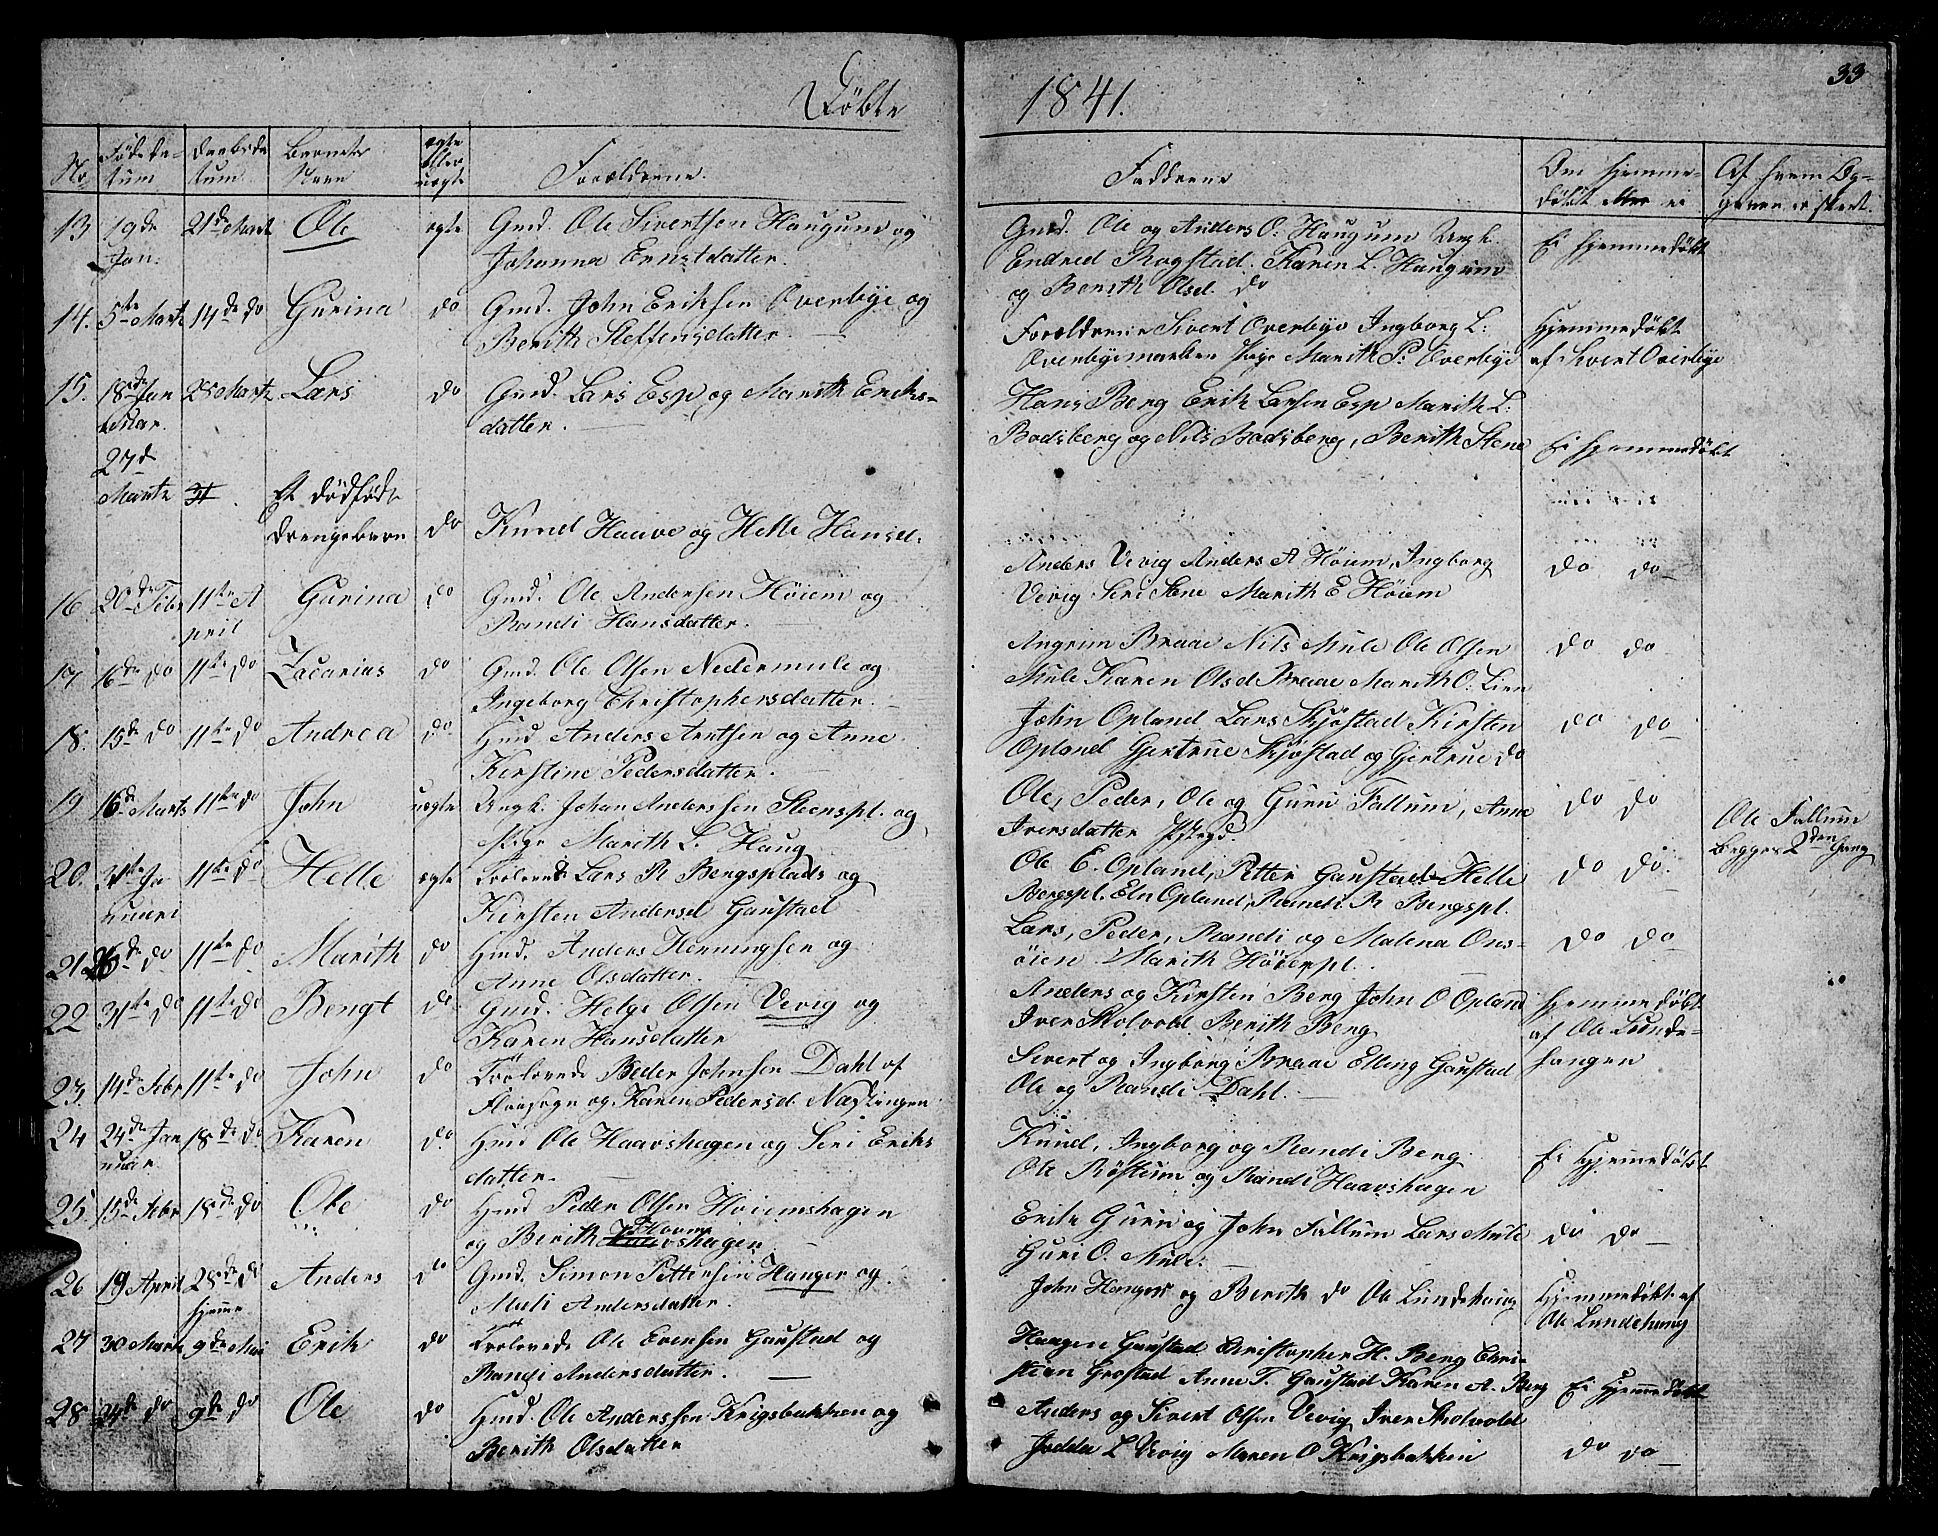 Døbte 1841. 33
No Fødeda- Daabsda Barnets ægte Forældrene Faddrene Om Hjemme- Af hvem Op-
tum tum Navn eller uægte døbt eller ei
13 19de 21de Martz Ole ægte Gmd. Ole Sivertsen Haugum og
Jan. Johanna Ernstdatter.
Gmd. Ole og Anders O. Haugum Ungk.
Endred Rogstad. Karen L. Haugum
og Berith Olsd. do
Ei Hjemmedøbt
14. 5te Martz 14de do Gurina do Gmd. John Eriksen Overbye og
Berith Steffensdatter.
Forældrene Sivert Overbye Ingborg L:
Overbyemarken Pige Marith P: Overbye
Hjemmedøbt
af Sivert Overbye
15. 18de Jan 28 Martz Lars do Gmd. Lars Esp og Marith Eriks-
uar. datter.
Hans Berg Erik Larsen Esp Marith L:
Bodsberg og Nils Bodsberg, Berith Stene
Ei Hjemmedøbt
27de
Martz Et dødfødt
Drengebarn do Knud Haave og Helle Hansd.
16 20de Febr 11te A Gurina do Gmd. Ole Andersen Høiem og
pril Randi Hansdatter.
Anders Vevig Anders A Høiem, Ingborg
Vevig Siri Stene Marith E Høiem
do do
17 16de do 11te do Zacarias do Gmd. Ole Olsen Nedermule og
Ingeborg Christophersdatter.
Angrim Braae Nils Mule Ole Olsen
Mule Karen Olsd Braae Marith O. Lien
do do
18. 15de do 11te do Andrea do. Hmd Anders Arntsen og Anne
Kirstine Pedersdatter.
John Opland Lars Skjøstad Kirsten
Opland Gjertrue Skjøstad og Gjertrue do
do do
19 16de Marts 11te do John uægte Ungk. Johan Anderssen Steenspl. og
Pige Marith L. Haug
Ole, Peder, Ole og Guru Fallum, Anne
Iversdatter
do do
Ole Fallum
begges 2den Gang
20. 31te Ja 11te do Helle ægte Trolovede Lars R Bergsplads og
nuari Kirsten Andersd Gaustad
Ole E. Opland, Petter Gaustad Helle
Bergspl. Eln Opland, Randi R Bergspl.
do do.
21 26de do 11te do Marith do Hmd. Anders Henningsen og
Anne Olsdatter.
Lars, Peder, Randi og Malena Ons-
øien Marith Høierpl.
do do
22 31te do 11te do Bengt do Gmd. Helge Olsen Vevig og
Karen Hansdatter
Anders og Kirsten Berg John O Opland
Iver Skolvold Berith Berg
Hjemmedøbt
af Ole Lunde-
haugen
23. 14de Febr 11te do John do Trolovede Peder Johnsen Dahl af
Flaasogn og Karen Pedersd.
Sivert og Ingborg Braae Elling Gaustad
Ole og Randi Dahl.
24 24de Jan 18de do Karen do. Hmd Ole Haavshagen og Siri Eriks
uar. datter.
Knud, Ingborg og Randi Berg
Ole Røstum og Randi Haavshagen
Ei Hjemmedøbt
25. 15de Febr 18de do Ole do Hmd Peder Olsen Høiemshagen
og Berith
Erik Guri og John Fallum Lars Mule
Guri O. Mule.
do do
26 19 April 28de do Anders do Gmd. Simon Pettersen Hanger og
hjemme Mali Andersdatter.
John Hanger og Berith do Ole Lundehaug
Hjemmedøbt af
Ole Lundehaug
27 30 Martz 9de Mai Erik do Trolovede Ole Evensen Gaustad og
Randi Andersdatter.
Haagen Gaustad Christopher H. Berg Chri-
stian Grostad Anne T. Gaustad Karen A. Berg
Ei Hjemmedøbt
28. 24de do 9de do Ole do Hmd. Ole Anderssen Krigsbakken og
Berith Olsdatter
Anders og Sivert Olsen Vevig Iver Skolvold
Jodda L Vevig Maren O Krigsbakken
do do